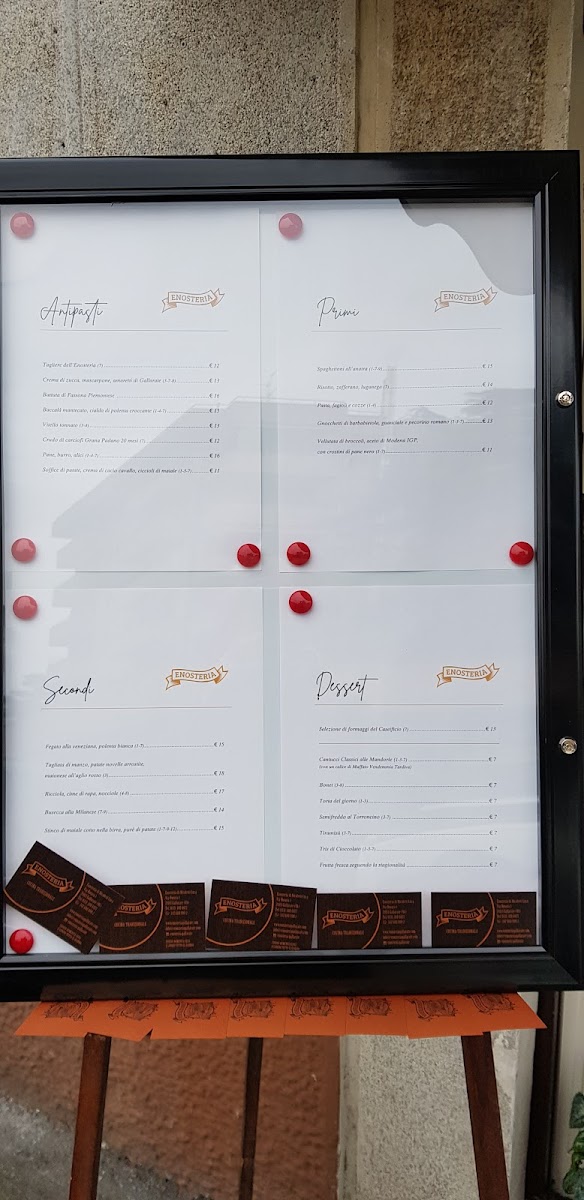 Antipasti
ENOSTERIA
Tagliere dell'Enosteria (7) € 12
Crema di zucca, mascarpone, amaretti di Gallarate (1-7-8) € 13
Battuta di Fassona Piemontese € 16
Baccalà mantecato, cialda di polenta croccante (1-4-7) € 15
Vitello tonnato € 13
Crudo di carciofi Grana Padano 20 mesi (7) € 12
Pane, burro, alici (1-4-7) € 16
Soffice di patate, crema di cacio cavallo, ciccioli di maiale (1-3-7) € 11
Primi
ENOSTERIA
Spaghettoni all'anatra (1-7-9) € 15
Risotto, zafferano, luganega € 14
Pasta, fagioli e cozze € 12
Gnocchetti di barbabietola, guanciale e pecorino romano (1-3-7) € 13
Vellutata di broccoli, aceto di Modena IGP,
con crostini di pane nero (1-7) € 11
Secondi
ENOSTERIA
Fegato alla veneziana, polenta bianca (1-7) € 15
Tagliata di manzo, patate novelle arrostite,
maionese all'aglio rosso (3) € 18
Ricciola, cime di rapa, nocciole (4-8) € 17
Busecca alla Milanese (7-9) € 14
Stinco di maiale cotto nella birra, purè di patate (1-7-9-12) € 15
Dessert
ENOSTERIA
Selezione di formaggi del Caseificio (7) € 13
Cantucci Classici alle Mandorle (1-3-7) € 7
(con un calice di Maffuto Vendemmia Tardiva)
Bonet (3-8) € 7
Torta del giorno (1-3) € 7
Semifreddo al Torroncino (3-7) € 7
Tiramisù (3-7) € 7
Tris di Cioccolato (1-3-7) € 7
Frutta fresca secondo la stagionalità € 7
ENOSTERIA
CUCINA TRADIZIONALE
ENOSTERIA
CUCINA TRADIZIONALE
ENOSTERIA
CUCINA TRADIZIONALE
ENOSTERIA
CUCINA TRADIZIONALE
ENOSTERIA
CUCINA TRADIZIONALE